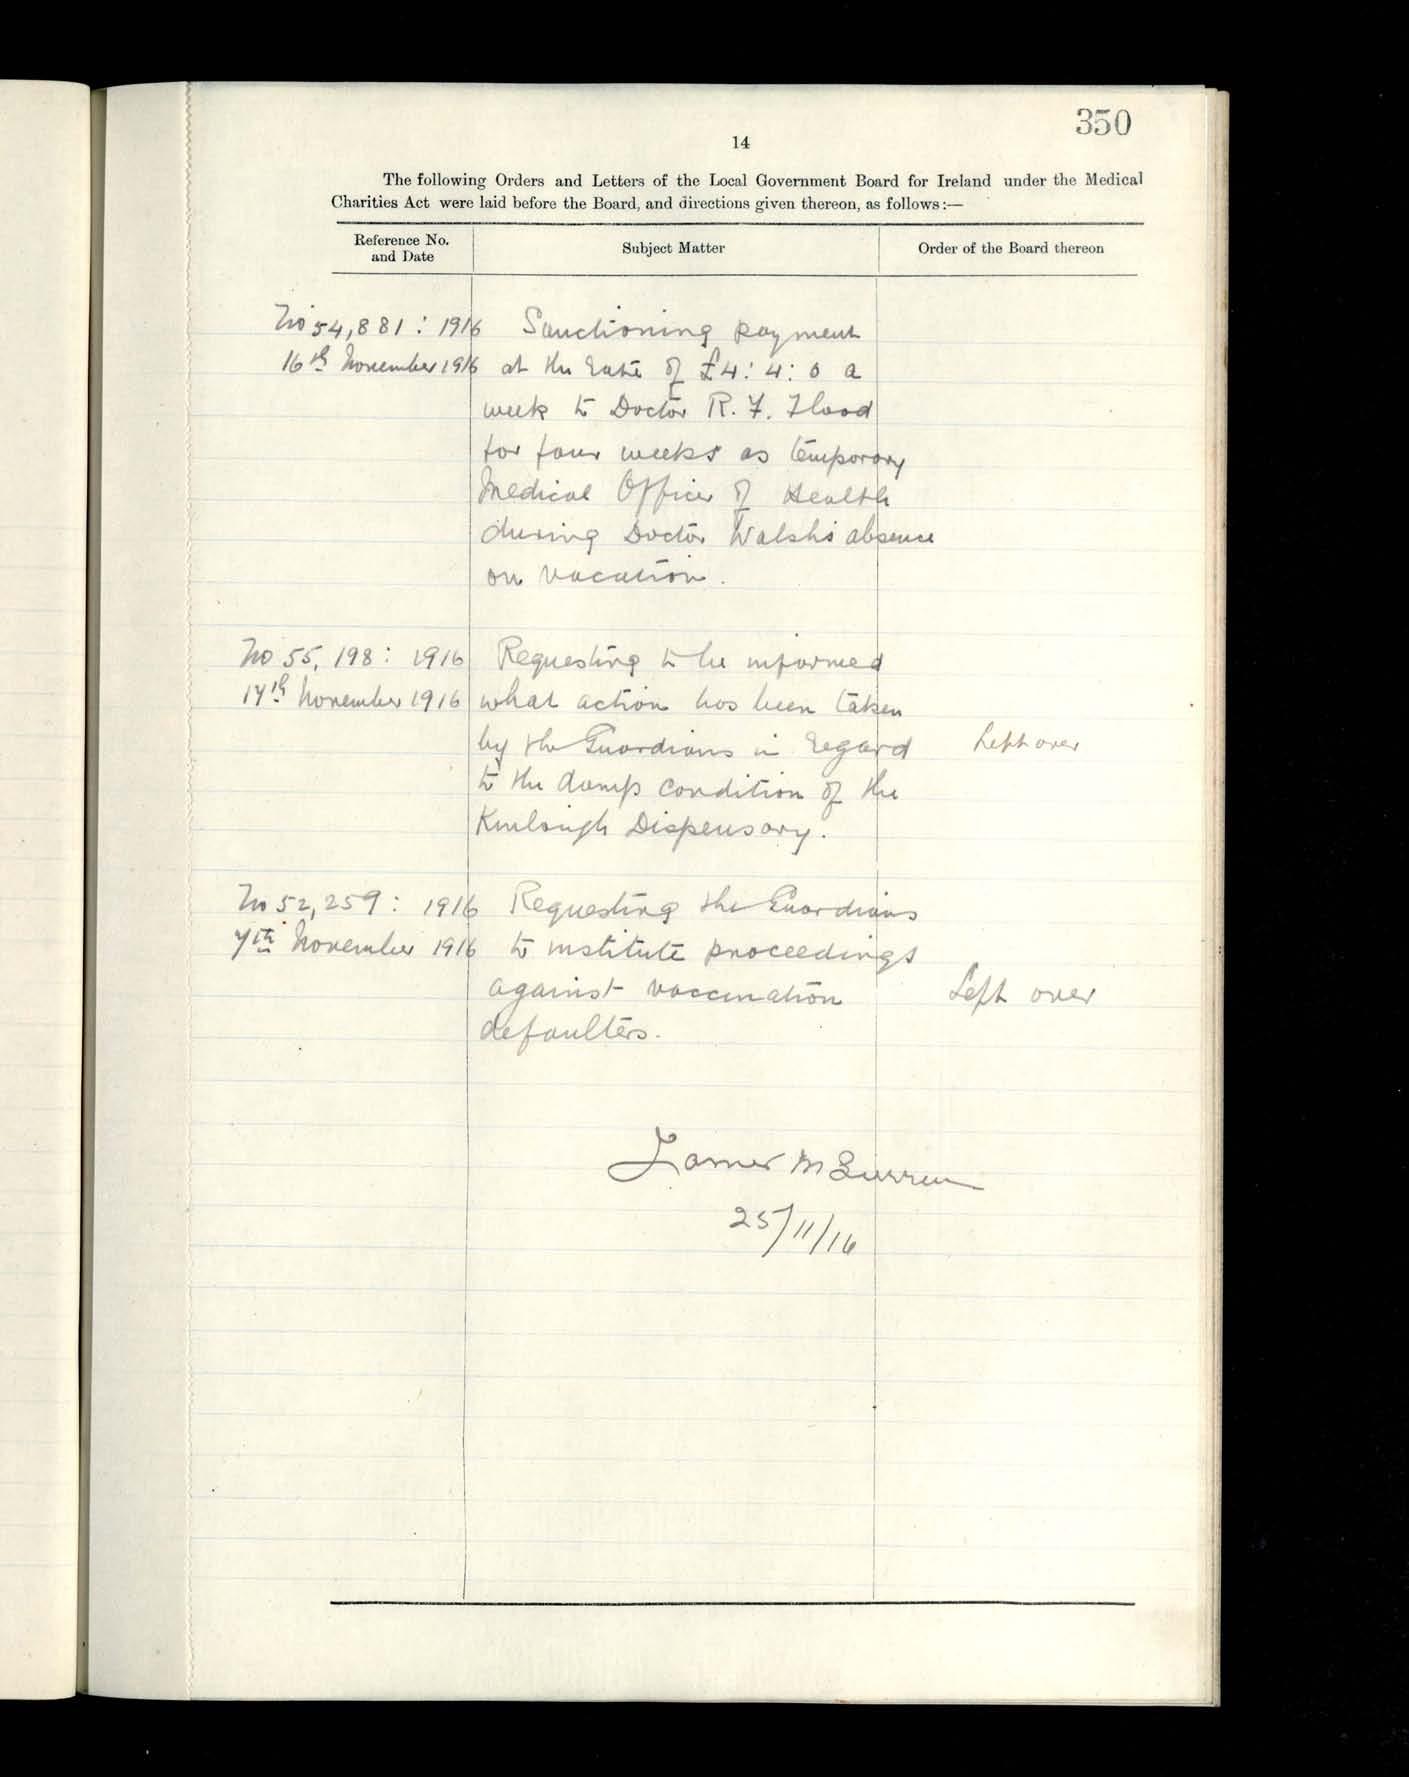 350
14
The following Orders and Letters of the Local Government Board for Ireland under the Medical
Charities Act were laid before the Board, and directions given thereon, as follows:—
Reference No.
and Date
Subject Matter
Order of the Board thereon
No 54,881 : 1916 Sanctioning payment
16th November 1916 at the rate of £4:4:0 a
week to Doctor R. F. Flood
for four weeks as temporary
Medical Officer of Health
during Doctor Walsh's absence
on vacation.
No 55,198 : 1916 Requesting to be informed
17th November 1916 what action has been taken
by the Guardians in regard Left over
to the damp condition of the
Kinlough Dispensary.
No 52,259 : 1916 Requesting the Guardians
7th November 1916 to institute proceedings
against vaccination Left over
defaulters.
James
25/11/16